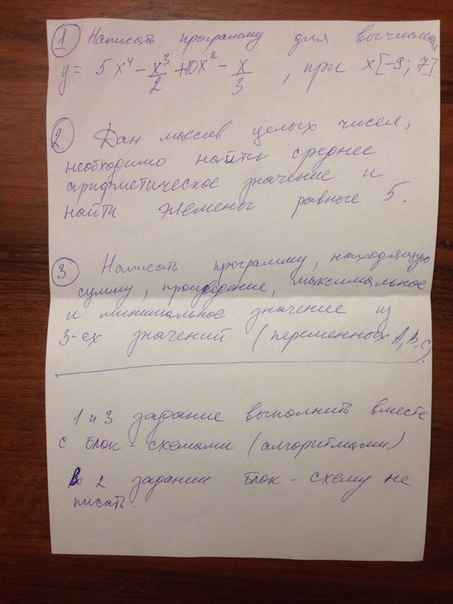 1 Написать программу для вычисления
y = 5x⁴ - x³/2 + 10x² - x/3, при x[-9; 7]
2 Дан массив целых чисел,
необходимо найти среднее
арифметическое значение и
найти элементы равные 5.
3 Написать программу, находящую
сумму, произведение, максимальное
и минимальное значение из
3-ех значений (переменных A, B, C)
1 и 3 задание выполнить вместе
с блок-схемами (алгоритмами)
Во 2 задании блок-схему не
писать.